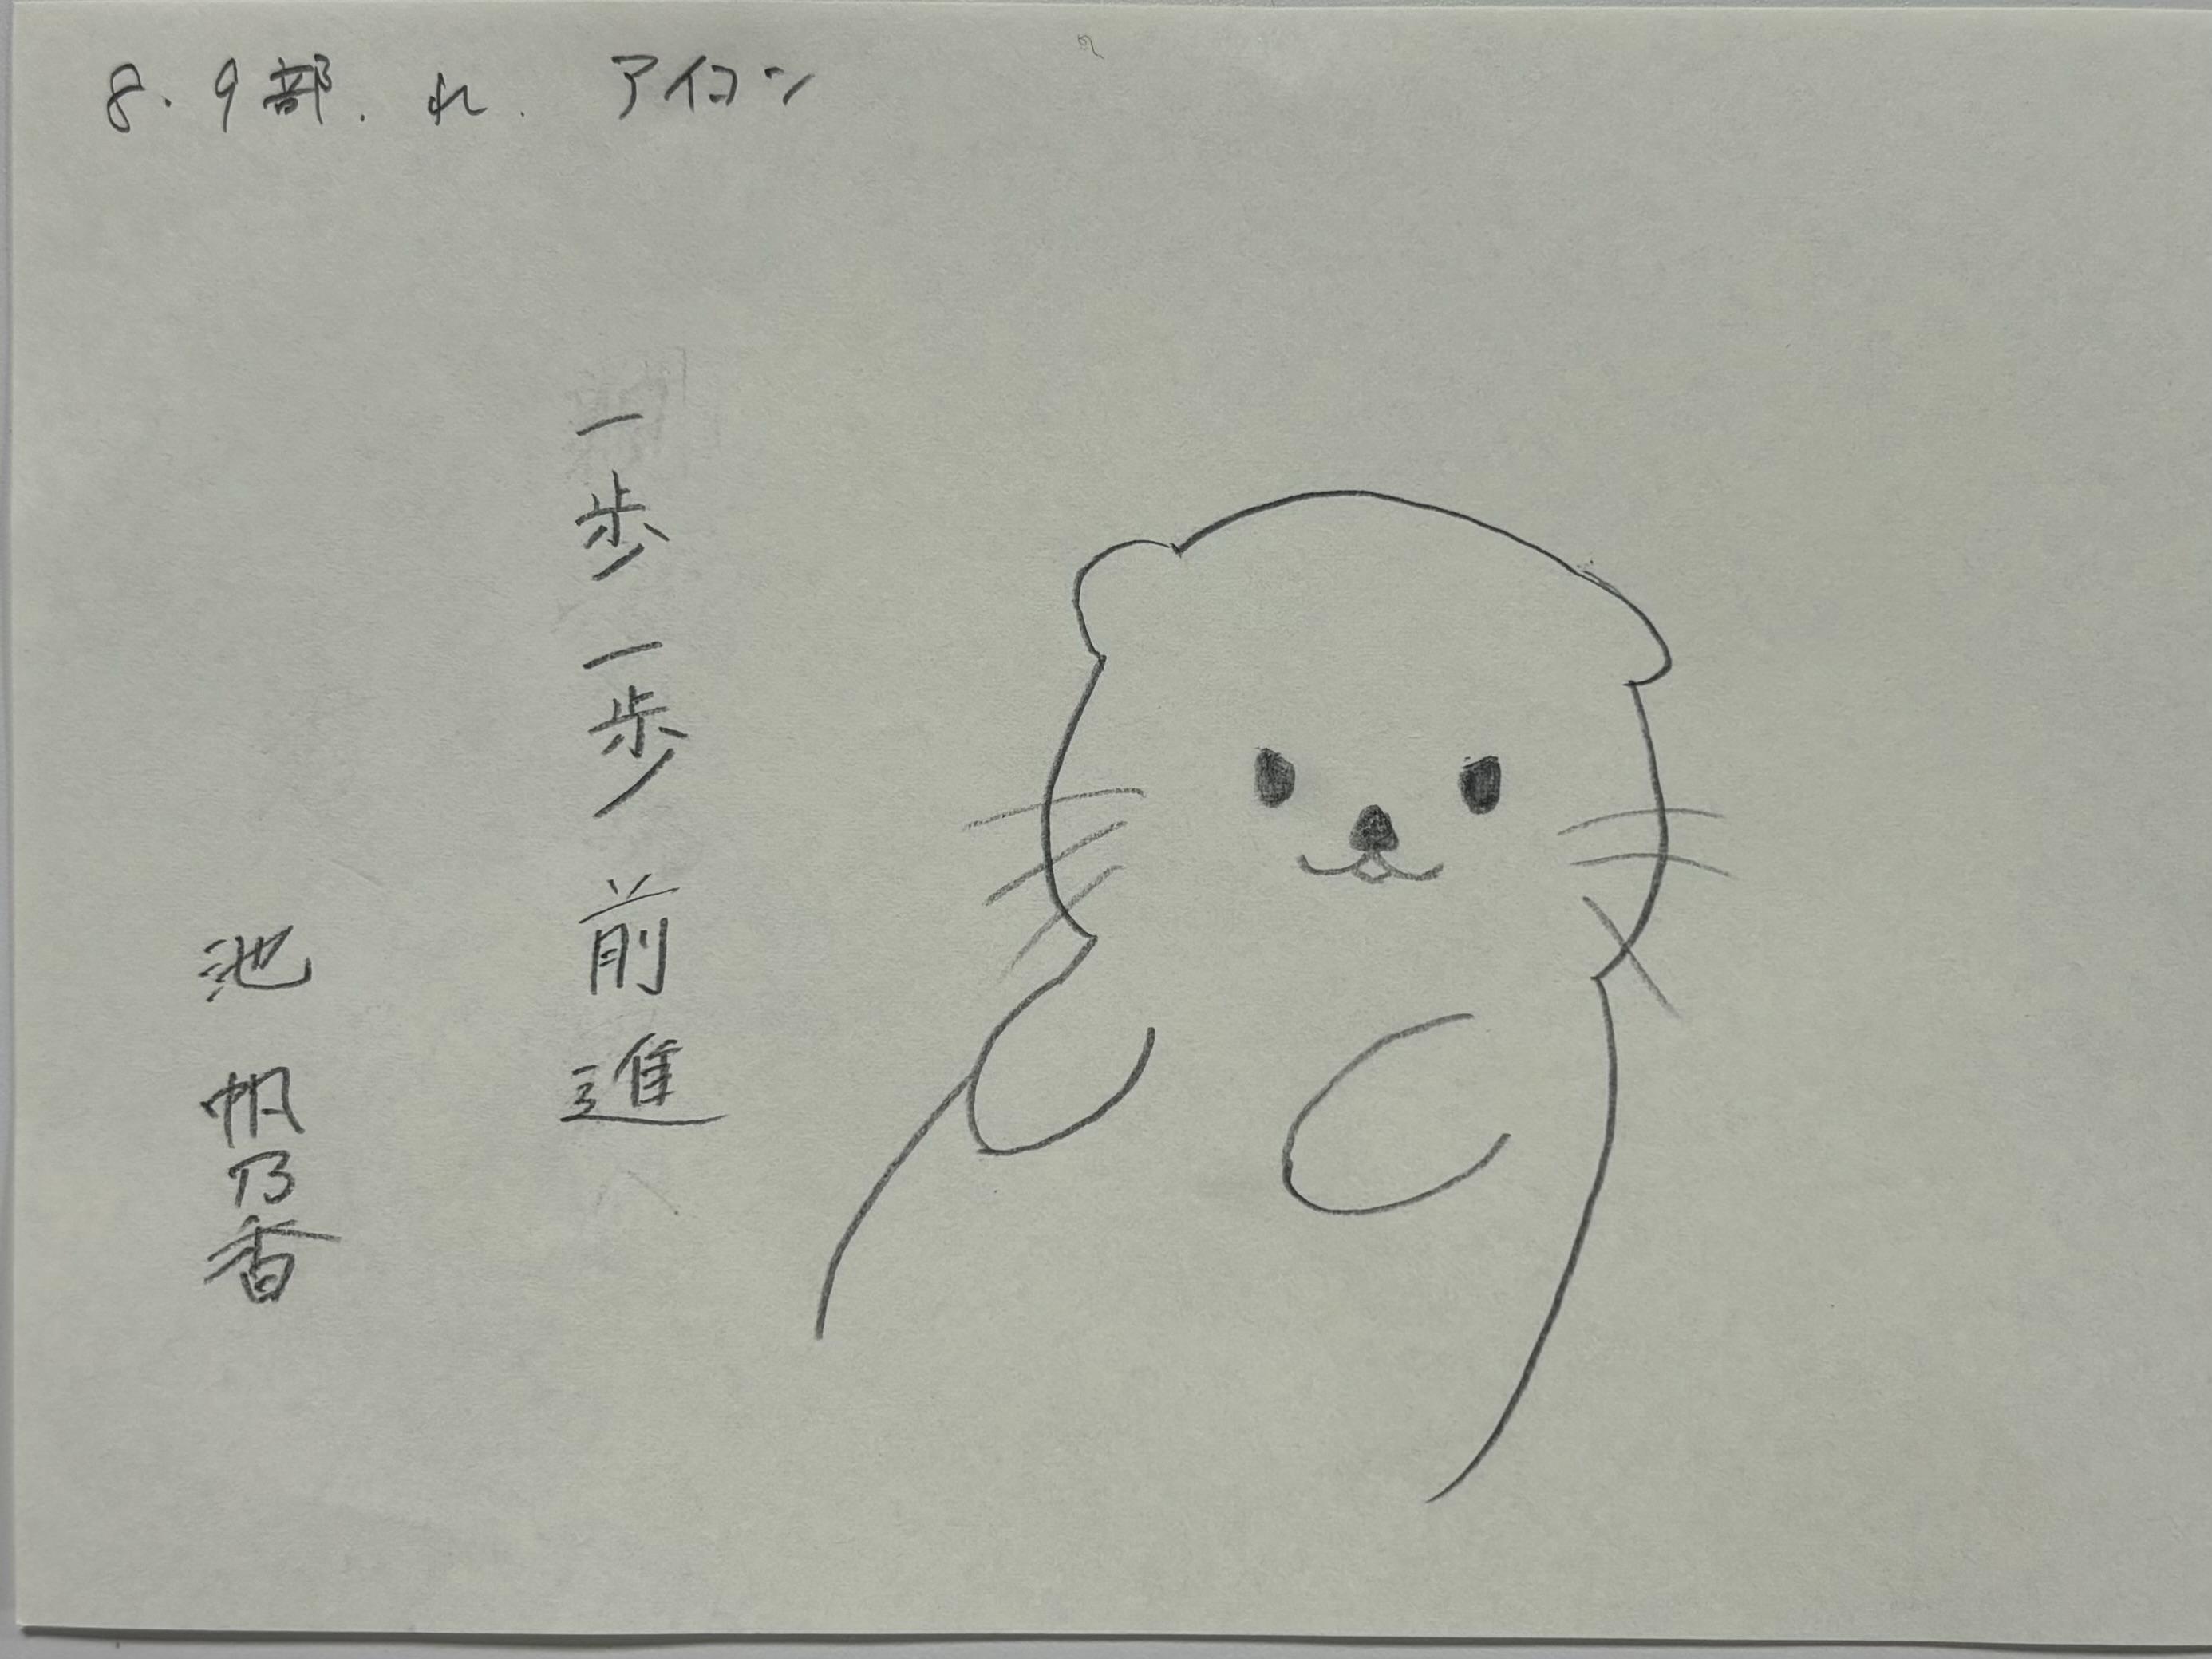 8.9部.れ.アイコン
一歩一歩前進
池 帆乃香